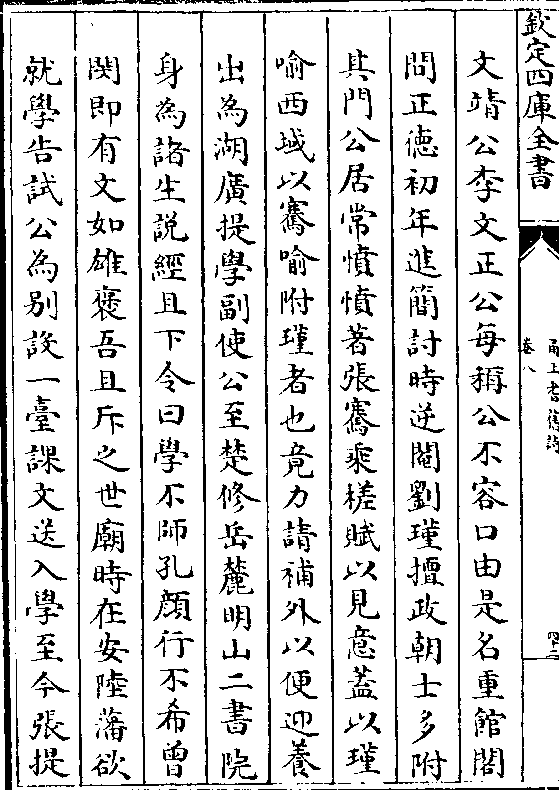 欽定四庫全書
甬上耆舊詩
卷八
文靖公李文正公每稱公不容口由是名重館閣
問正徳初年進簡討時逆閹劉瑾擅政朝士多附
其門公居常憤憤著張騫乘槎賦以見意葢以瑾
喻西域以騫喻附瑾者也竟力請補外以便迎養
出為湖廣提學副使公至楚修岳麓明山二書院
身為諸生説經且下令曰學不師孔顔行不希曾
閔即有文如雄褒吾且斥之世廟時在安陸藩欲
就學告試公為别設一臺課文送入學至今張提